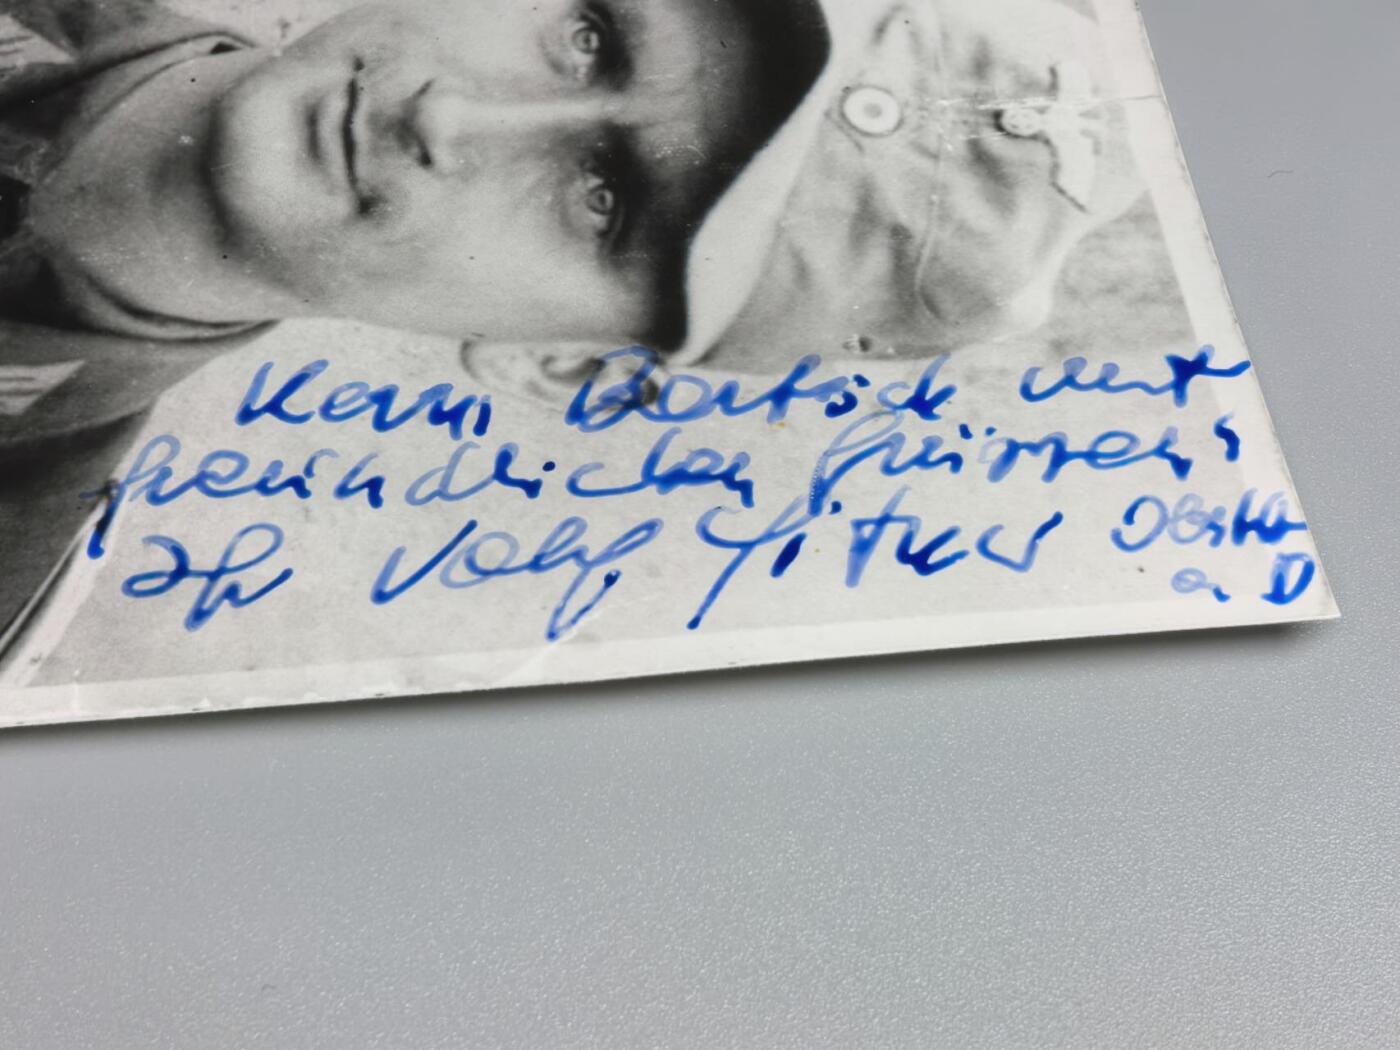 Herrn Bartsch mit
freundlichen Grüssen!
Ihr Oberst
a D